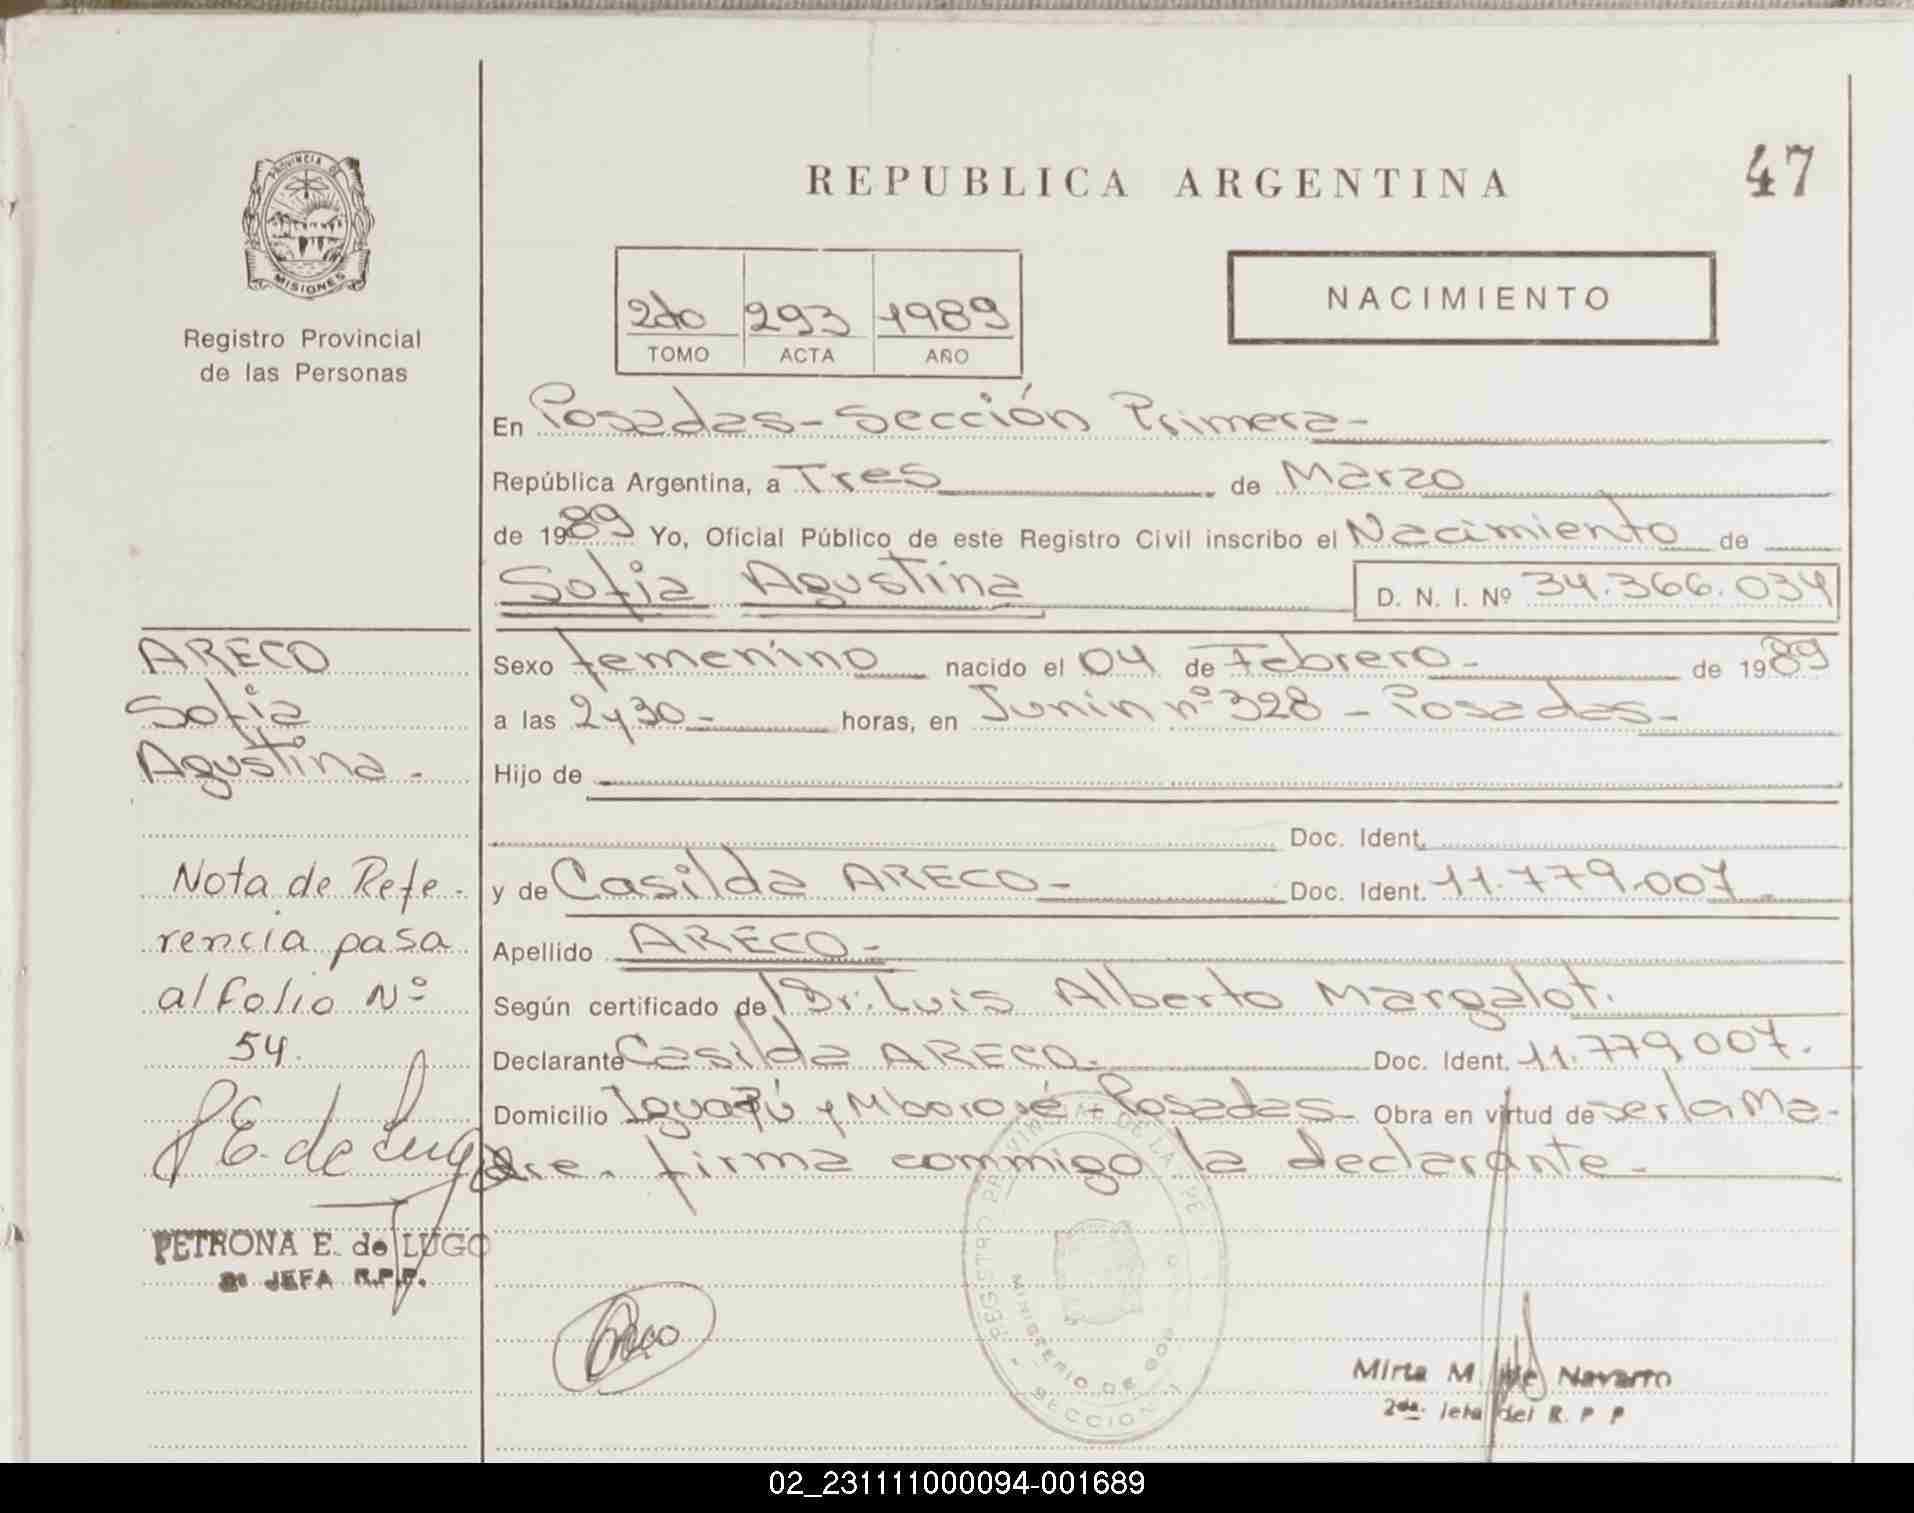 REPUBLICA ARGENTINA
47
PROVINCIA DE
MISIONES
Registro Provincial
de las Personas
2do 293 1989
TOMO ACTA AÑO
NACIMIENTO
En Posadas - Sección Primera -
República Argentina, a Tres de Marzo
de 1989 Yo, Oficial Público de este Registro Civil inscribo el Nacimiento de
Sofia Agustina D. N. I. Nº 34.366.034
Sexo femenino nacido el 04 de Febrero - de 1989
a las 2y30 - horas, en Junin nº 328 - Posadas -
Hijo de
Doc. Ident.
y de Casilda ARECO - Doc. Ident. 11.779.007
Apellido ARECO -
Según certificado de Dr. Luis Alberto Margalot.
Declarante Casilda ARECO. Doc. Ident. 11.779.007.
Domicilio Iguazú y Mbororé - Posadas - Obra en virtud de ser la Ma-
dre. firma conmigo la declarante -
ARECO
Sofia
Agustina.
Nota de Refe-
rencia pasa
al folio Nº
54.
P E. de Lugo
PETRONA E. de LUGO
2ª JEFA R.P.P.
Areco
REGISTRO PROVINCIAL DE LAS PE
MINISTERIO DE GOB
SECCION 1
Mirta M. de Navarro
2da. Jefa del R. P P
02_231111000094-001689